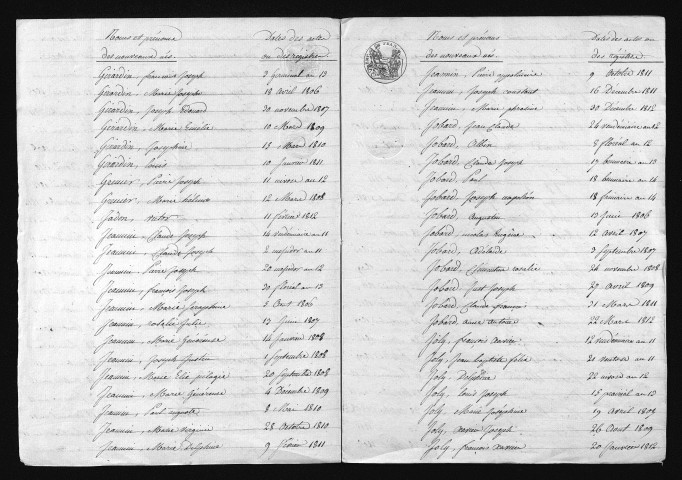 Noms et prénoms
des nouveaux nés.
Dates des actes
ou des registres
Girardin, françois Joseph 3 germinal an 13
Girardin, Marie Josephe 18 avril 1806
Girardin, Joseph Edouard 30 novembre 1807
Girardin, Marie Emelie 10 Mars 1809
Girardin, Josephine 15 Mars 1810
Girardin, Louis 10 Janvier 1811
Grenier, Pierre Joseph 11 nivose an 12
Grenier, Marie 12 Mars 1808
11 fevrier 1812
Jeannin, Claude Joseph 14 vendemiaire an 11
Jeannin, Claude Joseph 2 messidor an 11
Jeannin, Pierre Joseph 20 messidor an 12
Jeannin, françois Joseph 20 floreal an 13
Jeannin, Marie Seraphine 3 Aout 1806
Jeannin, rosalie Julie 13 Juin 1807
Jeannin, Marie Genereuse 14 Janvier 1808
Jeannin, Joseph Justin 1 Septembre 1808
Jeannin, Marie Elie pelagie 20 Septembre 1808
Jeannin, Marie Généreuse 4 Décembre 1809
Jeannin, Paul auguste 8 Mai 1810
Jeannin, Marie virginie 28 Octobre 1810
Jeannin, Marie Delphine 9 fevrier 1811
Noms et prénoms
des nouveaux nés.
Dates des actes ou
des registres
Jeannin, Pierre appolinaire 9 Octobre 1811
Jeannin, Joseph constant 16 Décembre 1811
Jeannin, Marie 30 Décembre 1812
Jobard, Jean Claude 24 vendémiaire an 12
Jobard, Albin 8 floréal an 12
Jobard, Claude Joseph 17 brumaire an 13
Jobard, Paul 18 brumaire an 14
Jobard, Joseph napoléon 18 frimaire an 14
Jobard, Augustin 13 Juin 1806
Jobard, nicolas Eugène 12 avril 1807
Jobard, Adelaide 3 Septembre 1807
Jobard, rosalie 24 novembre 1808
Jobard, Just Joseph 29 avril 1809
Jobard, Claude françois 31 Mars 1811
Jobard, anne antoine 22 Mars 1812
Joly, françois xavier 12 vendémiaire an 11
Joly, Jean baptiste felix 21 ventose an 11
Joly, Delphine 22 nivose an 12
Joly, Louis Joseph 15 prairial an 13
Joly, Marie Josephine 19 Avril 1808
Joly, xavier Joseph 26 Aout 1809
Joly, françois xavier 20 Janvier 1812